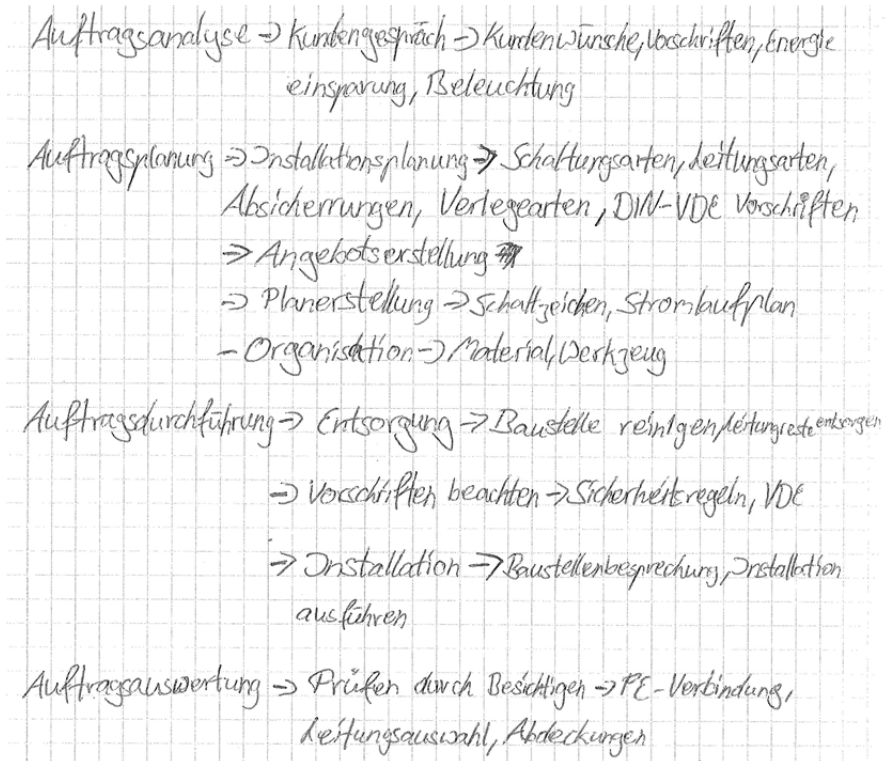 Auftragsanalyse → Kundengespräch → Kundenwünsche, Vorschriften, Energie
einsparung, Beleuchtung
Auftragsplanung → Installationsplanung → Schaltungsarten, Leitungsarten,
Absicherrungen, Verlegearten, DIN-VDE Vorschriften
→ Angebotserstellung
→ Planerstellung → Schaltzeichen, Stromlaufplan
- Organisation → Material, Werkzeug
Auftragsdurchführung → Entsorgung → Baustelle reinigen, Leitungsreste entsorgen
→ Vorschriften beachten → Sicherheitsregeln, VDE
→ Installation → Baustellenbesprechung, Installation
ausführen
Auftragsauswertung → Prüfen durch Besichtigen → PE-Verbindung,
Leitungsauswahl, Abdeckungen